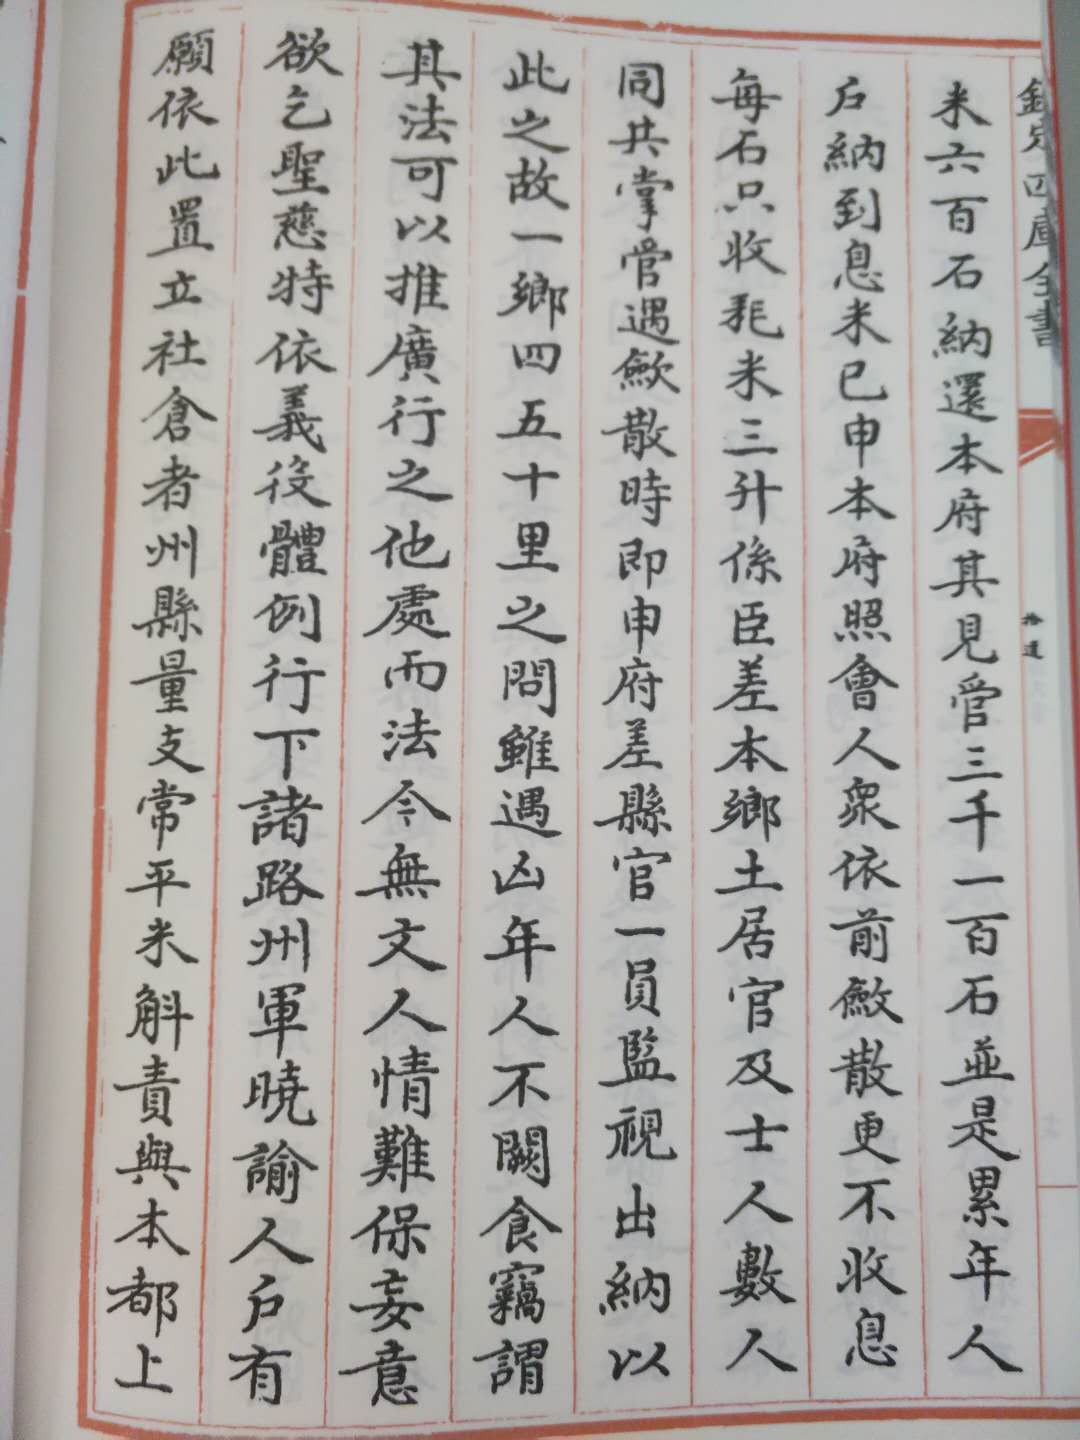 欽定四庫全書
米六百石納還本府其見管三千一百石並是累年人
戶納到息米已申本府照會人衆依前斂散更不收息
每石只收耗米三升係臣差本鄉土居官及士人數人
同共掌管遇斂散時即申府差縣官一員監視出納以
此之故一鄉四五十里之間雖遇凶年人不闕食竊謂
其法可以推廣行之他處而法令無文人情難保妄意
欲乞聖慈特依義役體例行下諸路州軍曉諭人戶有
願依此置立社倉者州縣量支常平米斛責與本都上